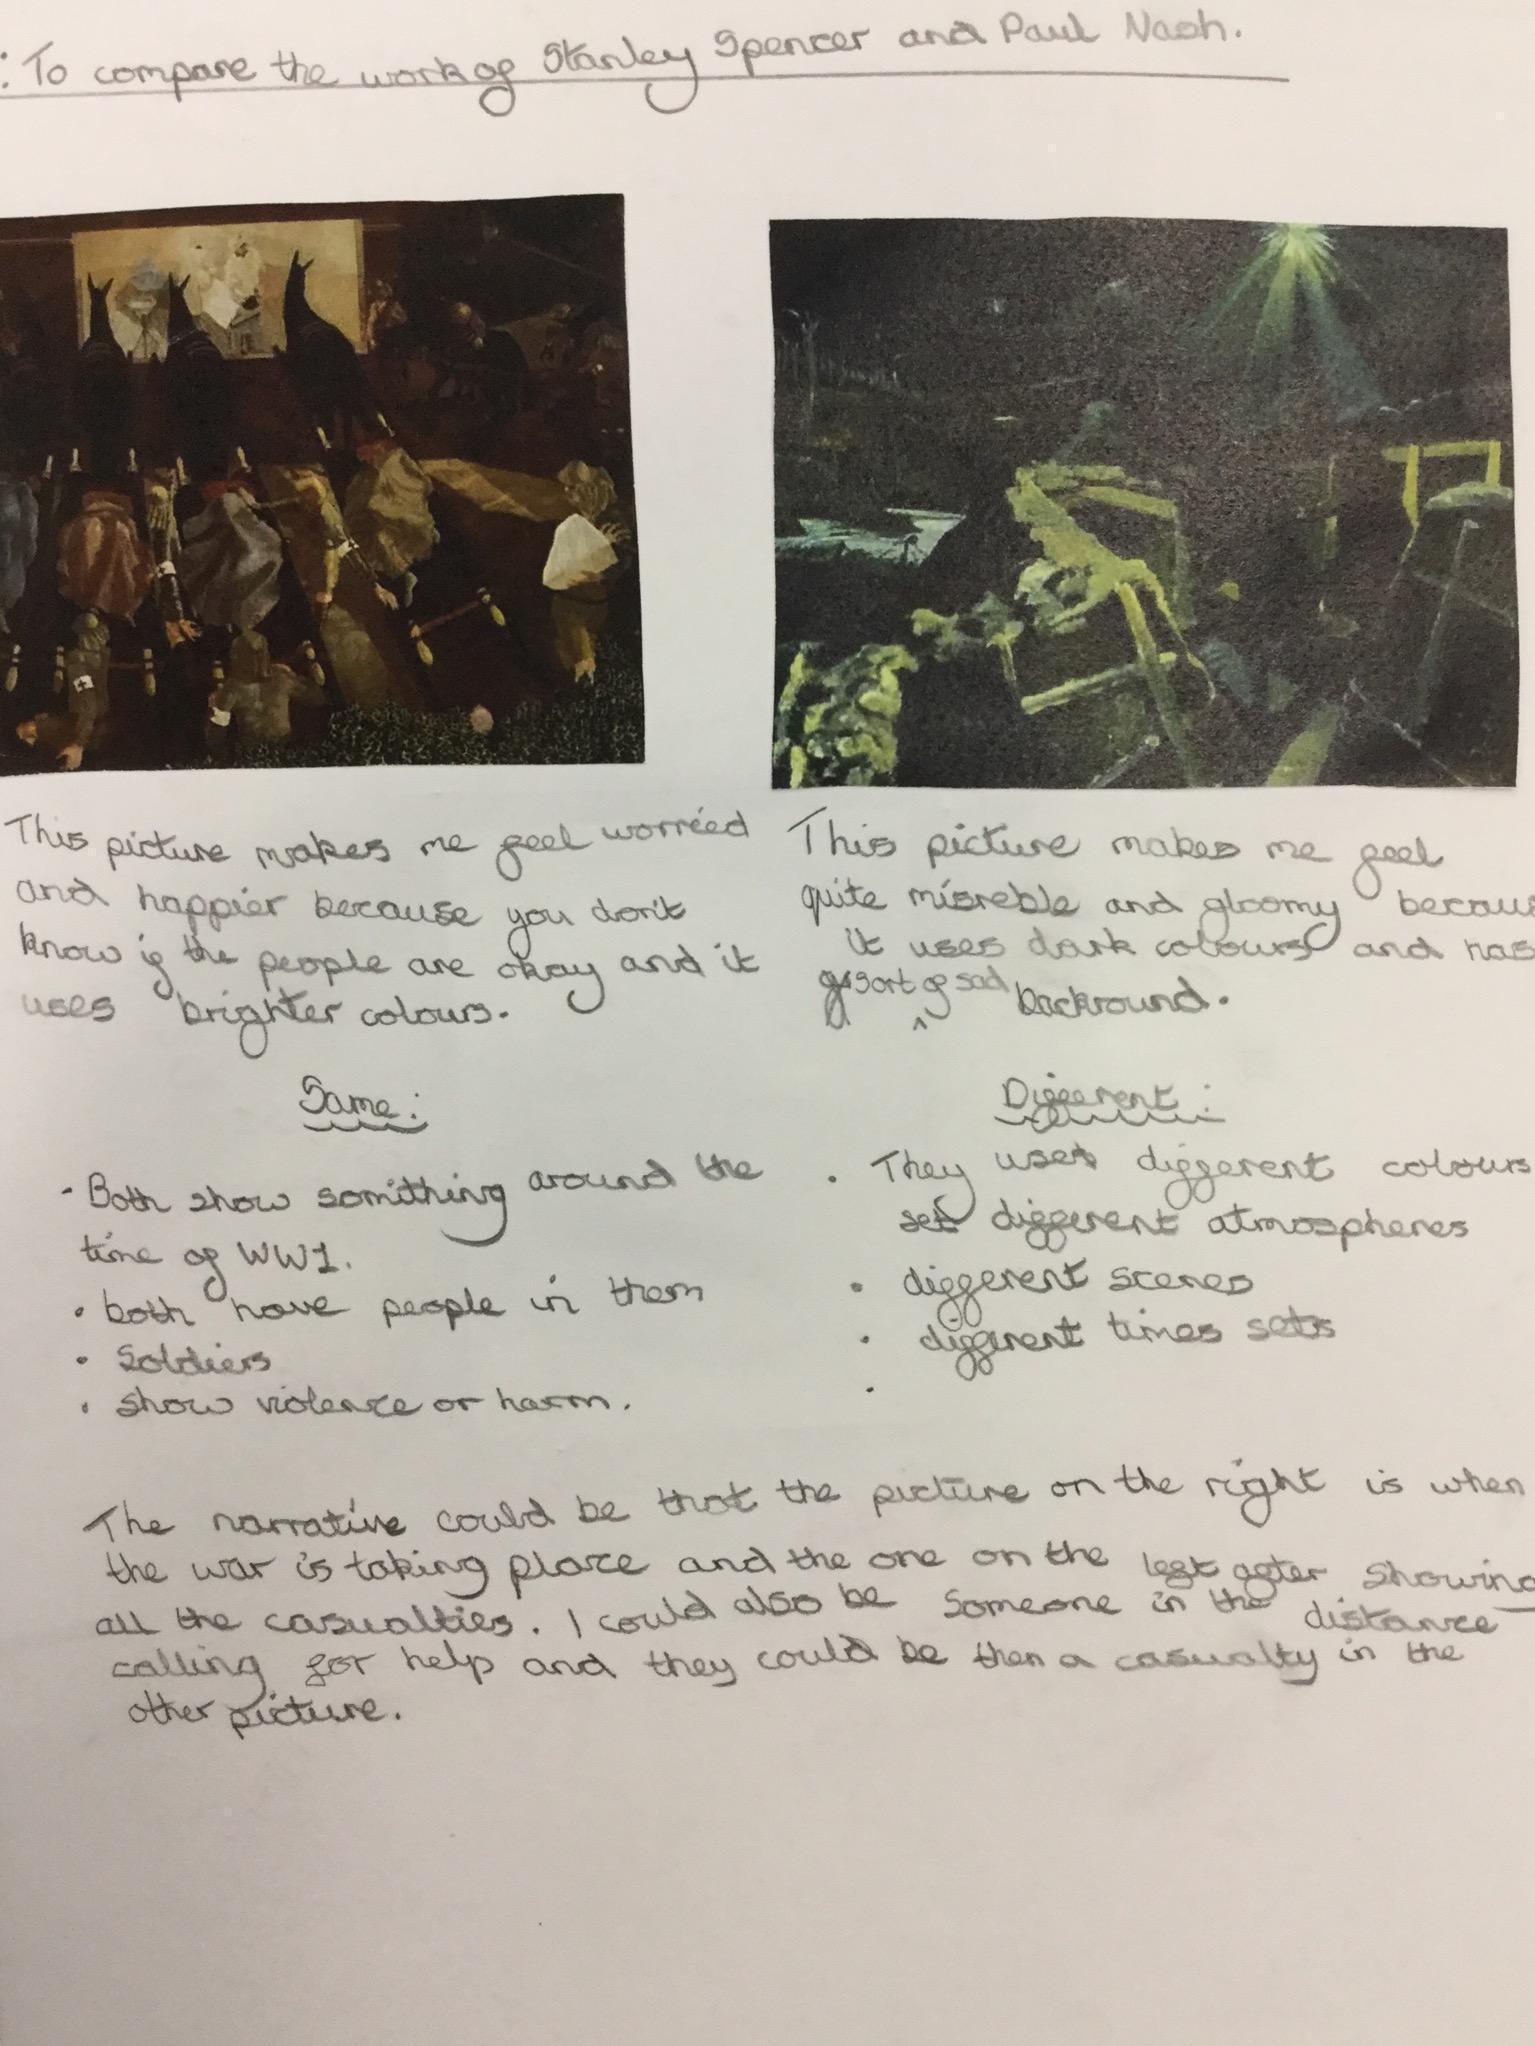 : To compare the work of Stanley Spencer and Paul Nash.
This picture makes me feel worried
and happier because you don't
know if the people are okay and it
uses brighter colours.
This picture makes me feel
quite misreble and gloomy becau
it uses dark colours and has
sort of sad backround.
Same:
- Both show somithing around the
time of WW1.
• both have people in them
• Soldiers
• show violence or harm.
Different:
• They uses different colours
set different atmospheres
• different scenes
• different times sets
•
The narrative could be that the picture on the right is when
the war is taking place and the one on the left after showing
all the casualties. I could also be someone in the distance
calling for help and they could be then a casualty in the
other picture.